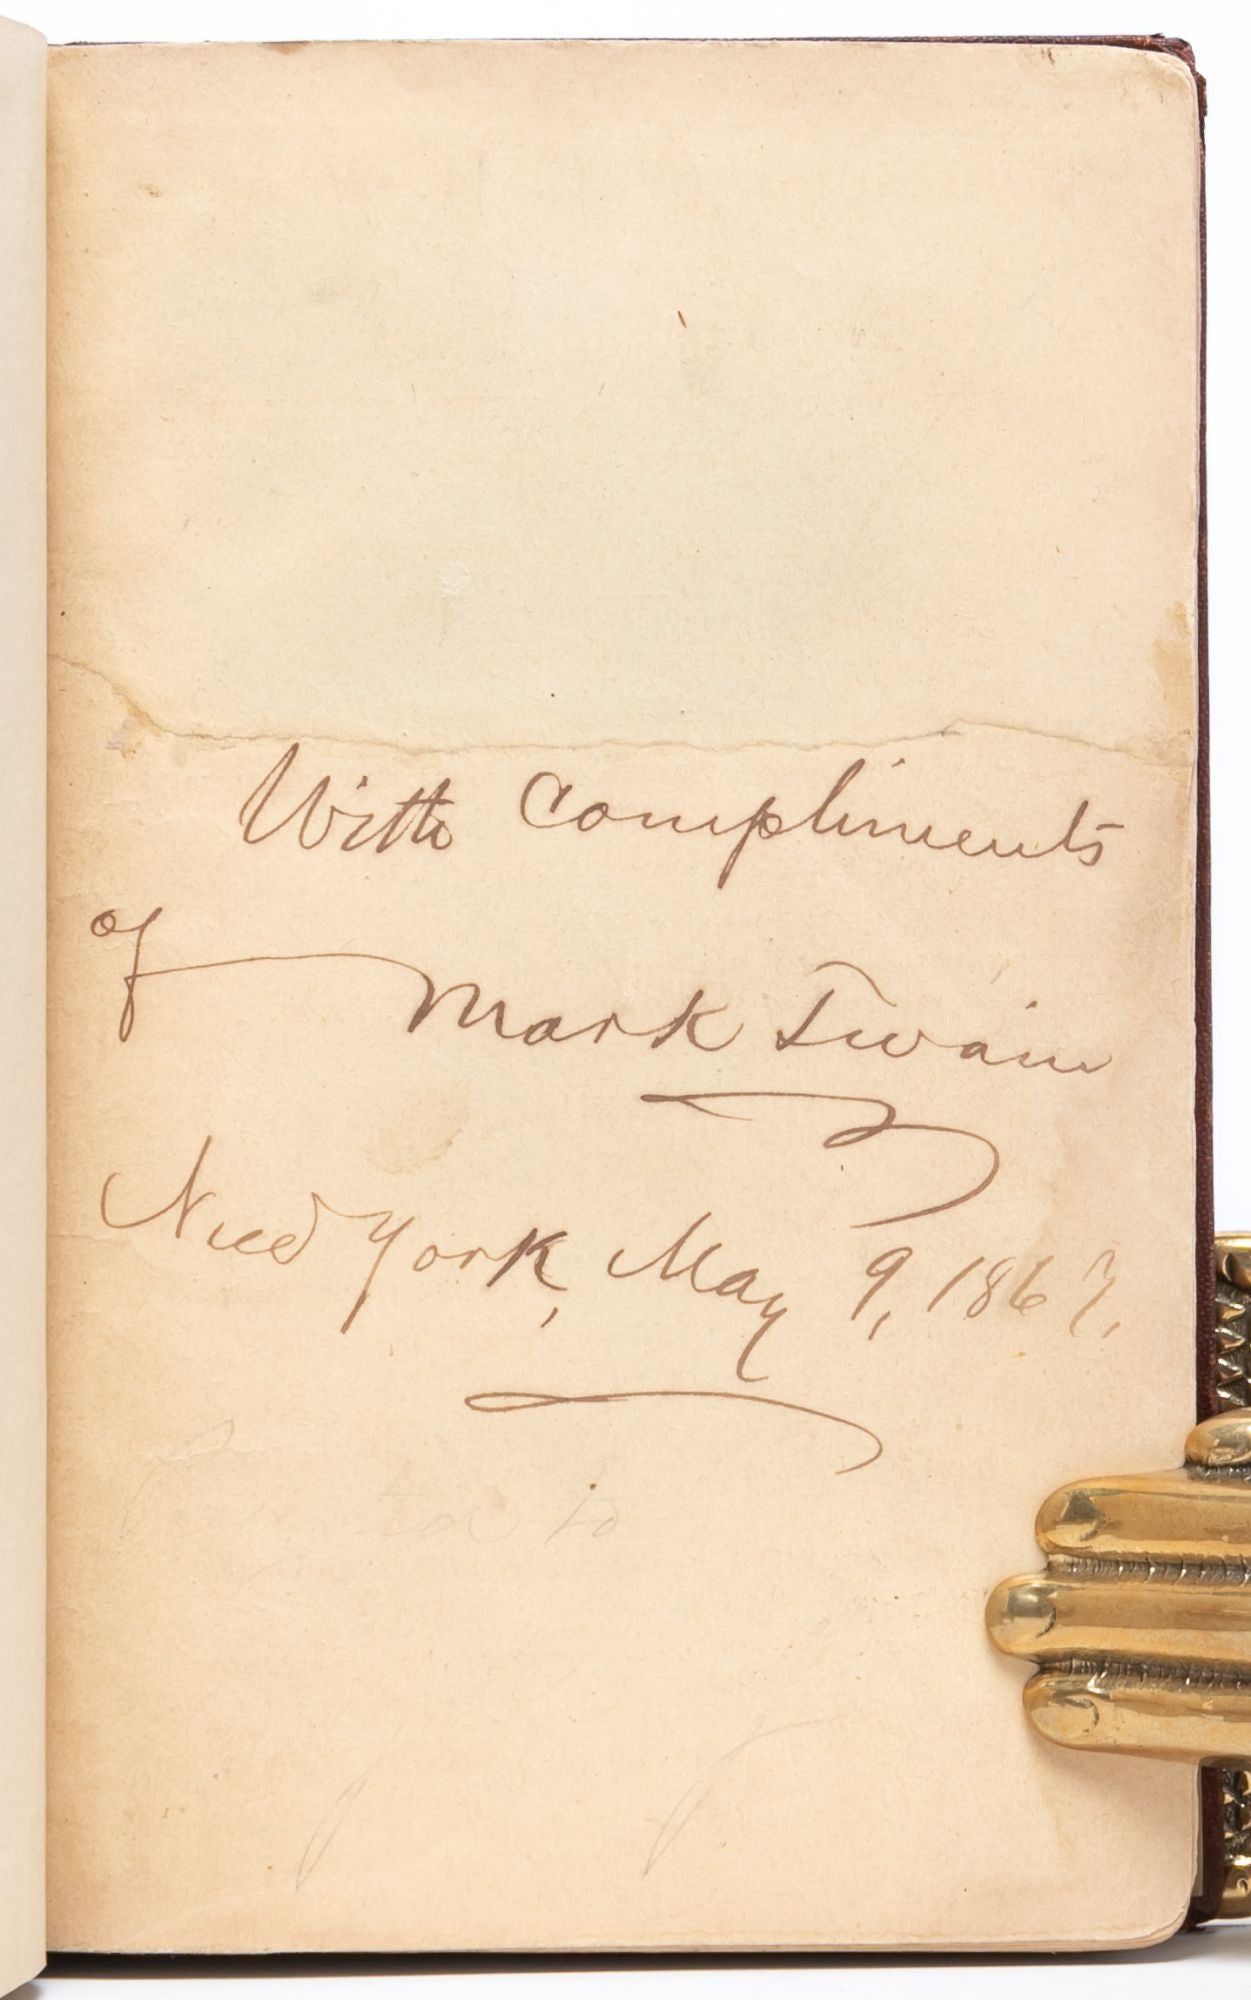 With Compliments
of Mark Twain
New York, May 9, 1867.
to